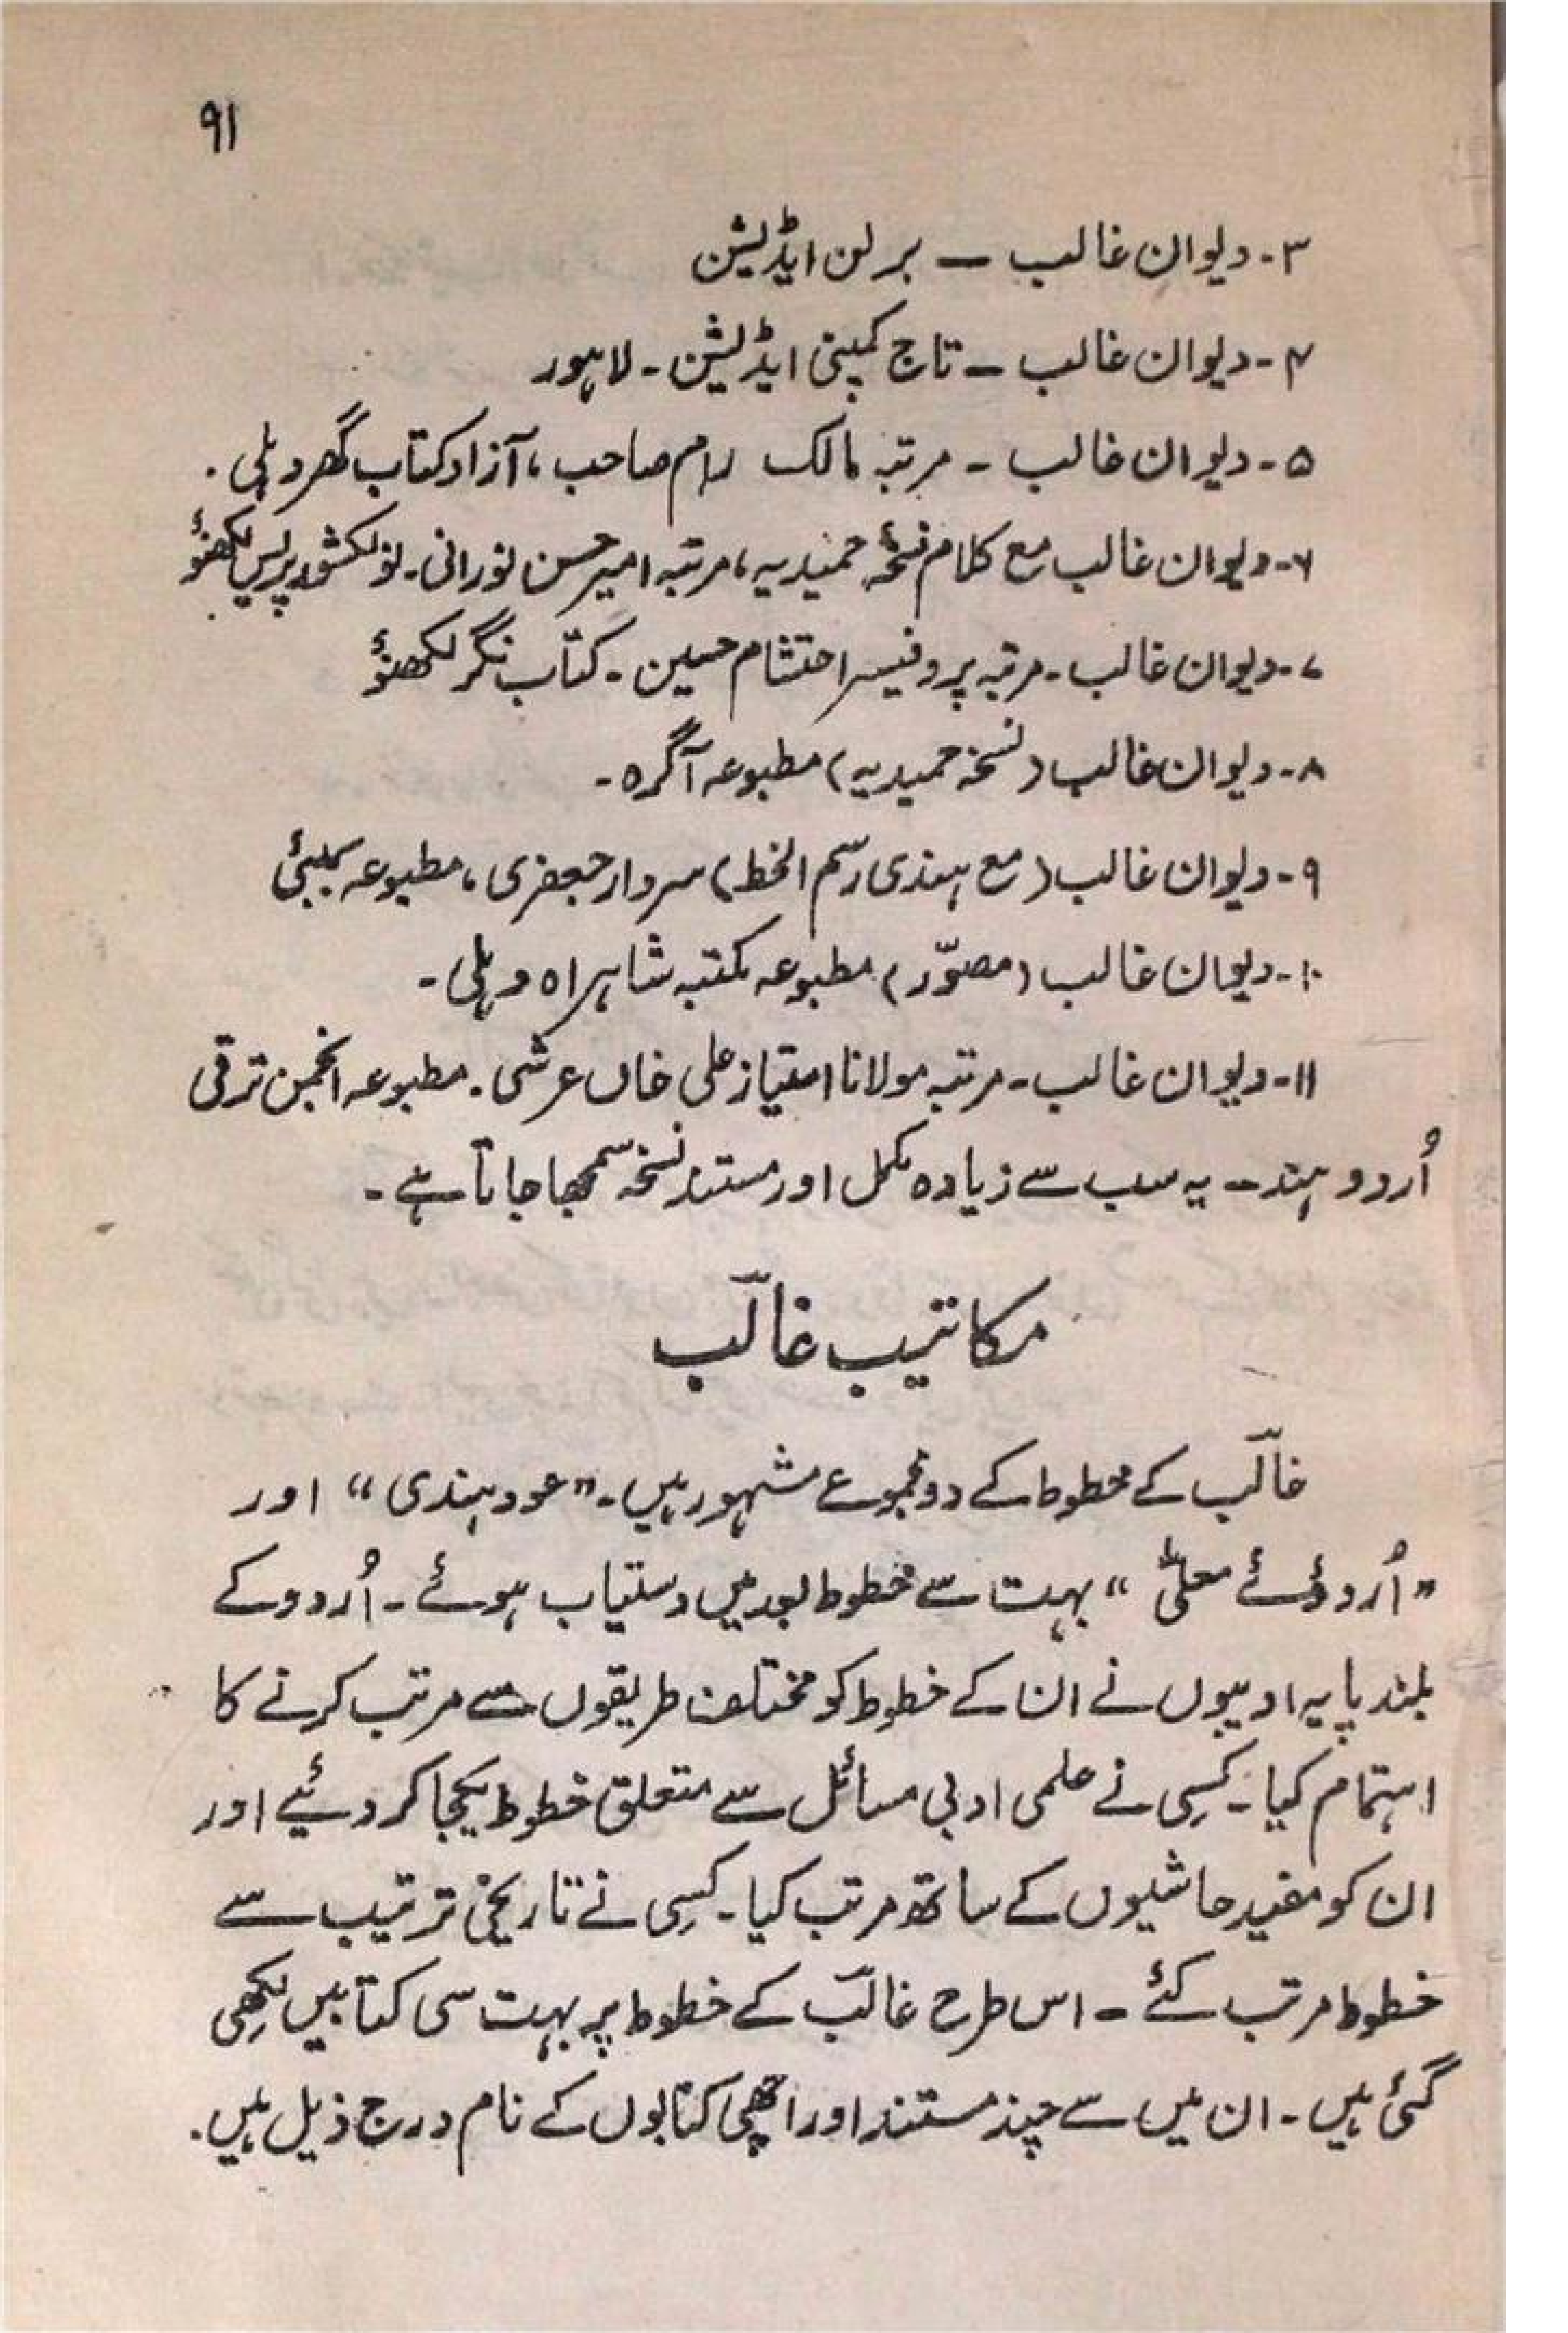 ۹۱
۳۔ دیوان غالب — برلن ایڈیشن
۴۔ دیوان غالب — تاج کمپنی ایڈیشن۔ لاہور
۵۔ دیوان غالب ۔ مرتبہ مالک رام صاحب، آزاد کتاب گھر دہلی۔
۶۔ دیوان غالب مع کلام نسخۂ حمیدیہ، مرتبہ امیر حسن نورانی۔ نولکشور پریس لکھنؤ
۷۔ دیوان غالب۔ مرتبہ پروفیسر احتشام حسین۔ کتاب نگر لکھنؤ
۸۔ دیوان غالب (نسخہ حمیدیہ) مطبوعہ آگرہ۔
۹۔ دیوان غالب (مع ہندی رسم الخط) سردار جعفری، مطبوعہ بمبئی
۱۰۔ دیوان غالب (مصوّر) مطبوعہ مکتبہ شاہراہ دہلی۔
۱۱۔ دیوان غالب۔ مرتبہ مولانا امتیاز علی خاں عرشی۔ مطبوعہ انجمن ترقی
اُردو ہند — یہ سب سے زیادہ مکمل اور مستند نسخہ سمجھا جاتا ہے۔
مکاتیب غالبؔ
غالبؔ کے خطوط کے دو مجموعے مشہور ہیں۔ ”عود ہندی“ اور
”اُردوئے معلیٰ“ بہت سے خطوط بعد میں دستیاب ہوئے۔ اُردو کے
بلند پایہ ادیبوں نے ان کے خطوط کو مختلف طریقوں سے مرتب کرنے کا
اہتمام کیا۔ کسی نے علمی ادبی مسائل سے متعلق خطوط یکجا کر دئیے اور
ان کو مفید حاشیوں کے ساتھ مرتب کیا۔ کسی نے تاریخی ترتیب سے
خطوط مرتب کئے۔ اس طرح غالبؔ کے خطوط پر بہت سی کتابیں لکھی
گئی ہیں۔ ان میں سے چند مستند اور اچھی کتابوں کے نام درج ذیل ہیں۔